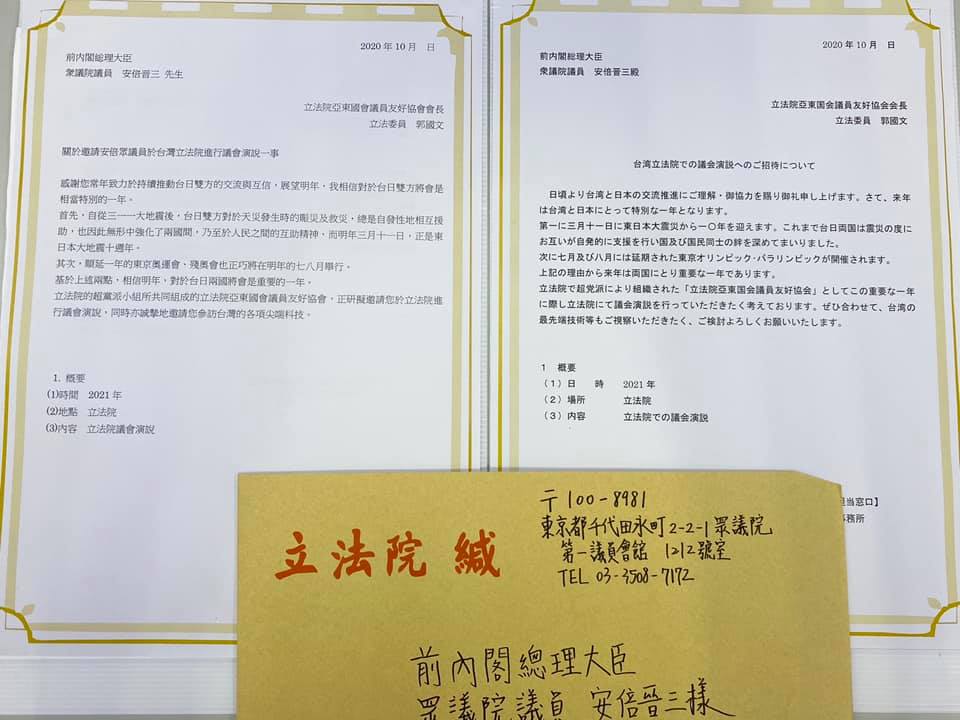 2020 年 10 月　日
前內閣總理大臣
衆議院議員　安倍晋三 先生
立法院亞東國會議員友好協會會長
立法委員　郭國文
關於邀請安倍眾議員於台灣立法院進行議會演說一事
感謝您常年致力於持續推動台日雙方的交流與互信，展望明年，我相信對於台日雙方將會是
相當特別的一年。
首先，自從三一一大地震後，台日雙方對於天災發生時的賑災及救災，總是自發性地相互援
助，也因此無形中強化了兩國間，乃至於人民之間的互助精神，而明年三月十一日，正是東
日本大地震十週年。
其次，順延一年的東京奧運會、殘奧會也正巧將在明年的七八月舉行。
基於上述兩點，相信明年，對於台日兩國將會是重要的一年。
立法院的超黨派小組所共同組成的立法院亞東國會議員友好協會，正研擬邀請您於立法院進
行議會演說，同時亦誠摯地邀請您參訪台灣的各項尖端科技。
1. 概要
(1)時間　2021 年
(2)地點　立法院
(3)內容　立法院議會演說
2020 年 10 月　日
前内閣総理大臣
衆議院議員　安倍晋三殿
立法院亞東国会議員友好協会会長
立法委員　郭國文
台湾立法院での議会演説へのご招待について
日頃より台湾と日本の交流推進にご理解・御協力を賜り御礼申し上げます。さて、来年
は台湾と日本にとって特別な一年となります。
第一に三月十一日に東日本大震災から一〇年を迎えます。これまで台日両国は震災の度に
お互いが自発的に支援を行い国及び国民同士の絆を深めてまいりました。
次に七月及び八月には延期された東京オリンピック・パラリンピックが開催されます。
上記の理由から来年は両国にとり重要な一年であります。
立法院で超党派により組織された「立法院亞東国会議員友好協会」としてこの重要な一年
に際し立法院にて議会演説を行っていただきたく考えております。ぜひ合わせて、台湾の
最先端技術等もご視察いただきたく、ご検討よろしくお願いいたします。
１　概要
（１）日　時　2021 年
（２）場所　立法院
（３）内容　立法院での議会演説
担当窓口】
事務所
立法院 緘
〒100-8981
東京都千代田永町2-2-1眾議院
第一議員會館 1212號室
TEL 03-3508-7172
前內閣總理大臣
眾議院議員 安倍晉三樣